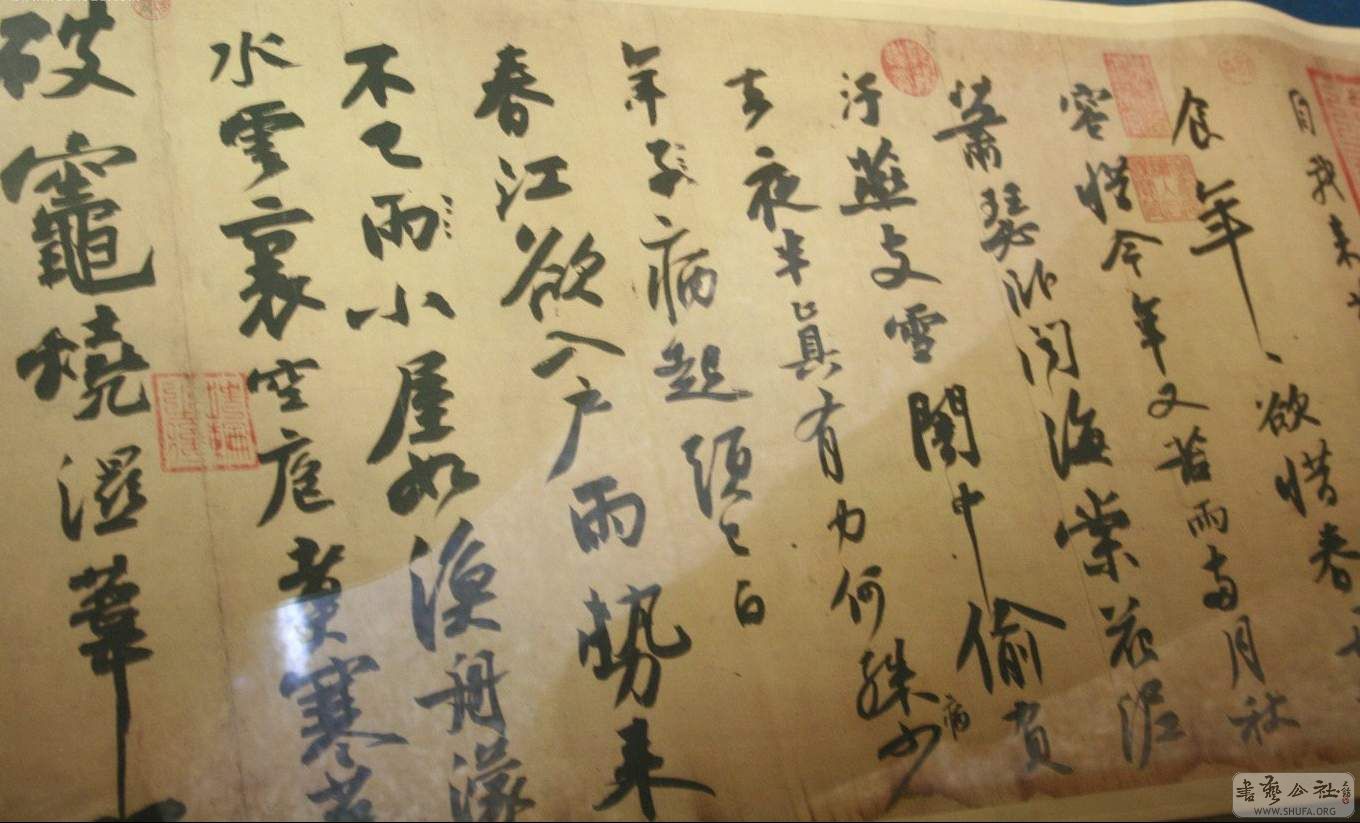 自我来
食年〻欲惜春
容惜今年又苦雨兩月秋
蕭瑟臥聞海棠花泥
汙燕支雪闇中偷負
去夜半真有力何殊少病
年子病起須已白
春江欲入戶雨勢來
不已雨小屋如漁舟濛
水雲裏空庖煮寒菜
破竈燒濕葦
書藝公社
WWW.SHUFA.ORG